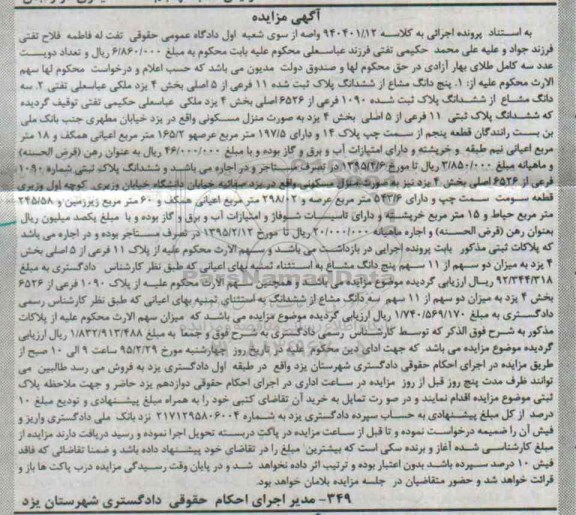 آگهی مزایده
به استناد پرونده اجرائی به کلاسه ۹۴۰۴۰۱/۱۲ واصه از سوی شعبه اول دادگاه عمومی حقوقی تفت له فاطمه فلاح تفتی
فرزند جواد و علیه علی محمد حکیمی تفتی فرزند عباسعلی محکوم علیه بابت محکوم به مبلغ ۶/۸۶۰/۰۰۰ ریال و تعداد دویست
عدد سه کامل طلای بهار آزادی در حق محکوم لها و صندوق دولت مدیون می باشد که حسب اعلام و درخواست محکوم لها سهم
الارث محکوم علیه از: ۱. پنج دانگ مشاع از ششدانگ پلاک ثبت شده ۱۱ فرعی از ۵ اصلی بخش ۴ یزد ملکی عباسعلی تفتی ۲. سه
دانگ مشاع از ششدانگ پلاک ثبت شده ۱۰۹۰ فرعی از ۶۵۲۶ اصلی بخش ۴ یزد ملکی عباسعلی حکیمی تفتی توقیف گردیده
که ششدانگ پلاک ثبتی ۱۱ فرعی از ۵ اصلی بخش ۴ یزد به صورت منزل مسکونی واقع در یزد خیابان مطهری جنب بانک ملی
بن بست رانندگان قطعه پنجم از سمت چپ پلاک ۱۴ و دارای ۱۹۷/۵ متر مربع عرصهو ۱۶۵/۲ متر مربع اعیانی همکف و ۱۸ متر
مربع اعیانی نیم طبقه و خرپشته و دارای امتیازات آب و برق و گاز بوده و با مبلغ ۴۶/۰۰۰/۰۰۰ ریال به عنوان رهن (قرض الحسنه)
و ماهیانه مبلغ ۳/۸۵۰/۰۰۰ ریال تا مورخ ۱۳۹۵/۲/۶ در تصرف مستاجر و در اجاره می باشد و ششدانگ پلاک ثبتی شماره ۱۰۹۰
فرعی از ۶۵۲۶ اصلی بخش ۴ یزد نیز به صورت منزل مسکونی واقع در یزد صفائیه خیابان دانشگاه خیابان وزیری کوچه اول وزیری
قطعه سومت سمت چپ و دارای ۵۴۳/۶ متر مربع عرصه و ۲۹۸/۰۲ متر مربع اعیانی همکف و ۶۰ متر مربع زیرزمین و ۲۴۵/۵۸
متر مربع حیاط و ۱۵ متر مربع خرپشته و دارای تاسیسات شوفاژ و امتیازات آب و برق و گاز بوده و با مبلغ یکصد میلیون ریال
بعنوان رهن (قرض الحسنه) و اجاره ماهیانه ۲۰/۰۰۰/۰۰۰ ریال تا مورخ ۱۳۹۵/۲/۱۲ در تصرف مستاجر بوده و در اجاره می باشد
که پلاکات ثبتی مذکور بابت پرونده اجرایی در بازداشت می باشد و سهم الارث محکوم علیه از پلاک ۱۱ فرعی از ۵ اصلی بخش
۴ یزد به میزان دو سهم از ۱۱ سهم پنج دانگ مشاع به استثناء ثمنیه بهای اعیانی که طبق نظر کارشناس دادگستری به مبلغ
۹۲/۳۴۴/۳۱۸ ریال ارزیابی گردیده موضوع مزایده می باشد و همچنین سهم الارث محکوم علیه از پلاک ۱۰۹۰ فرعی از ۶۵۲۶
بخش ۴ یزد به میزان دو سهم از ۱۱ سهم سه دانگ مشاع از ششدانگ به استثنای ثمنیه بهای اعیانی که طبق نظر کارشناس رسمی
دادگستری به مبلغ ۱/۷۴۰/۵۶۹/۱۷۰ ریال ارزیابی گردیده موضوع مزایده می باشد که میزان سهم الارث محکوم علیه از پلاکات
مذکور به شرح فوق الذکر که توسط کارشناس رسمی دادگستری به شرح فوق و جمعا به مبلغ ۱/۸۳۲/۹۱۳/۴۸۸ ریال ارزیابی
گردیده موضوع مزایده می باشد که جهت ادای دین محکوم علیه در تاریخ روز چهارشنبه مورخ ۹۵/۲/۲۹ ساعت ۹ الی ۱۰ صبح از
طریق مزایده در اجرای احکام حقوقی دادگستری شهرستان یزد واقع در طبقه اول دادگستری یزد به فروش می رسد طالبین می
توانند ظرف مدت پنج روز قبل از روز مزایده در ساعت اداری در اجرای احکام حقوقی دوازدهم یزد حاضر و جهت ملاحظه پلاک
ثبتی موضوع مزایده اقدام نمایند و در صورت تمایل به خرید آن تقاضای کتبی خود را به همراه مبلغ پیشنهادی و تودیع مبلغ ۱۰
درصد از کل مبلغ پیشنهادی به حساب سپرده دادگستری یزد به شماره ۲۱۷۱۲۹۵۸۰۶۰۰۴ نزد بانک ملی دادگستری واریز و
فیش آن را ضمیمه درخواست نموده و تا قبل از ساعت مزایده در پاکت دربسته تحویل اجرا نموده و رسید دریافت دارند مزایده از
مبلغ کارشناسی شده آغاز و برنده سکی است که بیشترین مبلغ را در تقاضای خود پیشنهاد داده باشد و ضمنا تقاضائی که فاقد
فیش ۱۰ درصد سپرده باشد بدون اعتبار بوده و ترتیب اثر داده نخواهد شد و در پایان وقت رسیدگی مزایده درب پاکت ها باز و
قرائت خواهد شد و حضور متقاضیان در جلسه مزایده بلامان خواهد بود.
۳۴۹- مدیر اجرای احکام حقوقی دادگستری شهرستان یزد